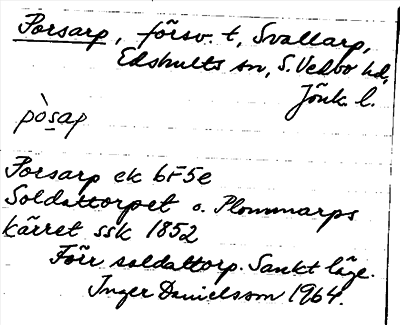 Porsarp, försv. t, Svallarp,
Edshults sn, S. Vedbo hd,
Jönk. l.
pòsap
Porsarp ek 6F5e
Soldattorpet o. Plommarps
kärret ssk 1852
Förr soldattorp. Sankt läge.
Inger Danielsson 1964.